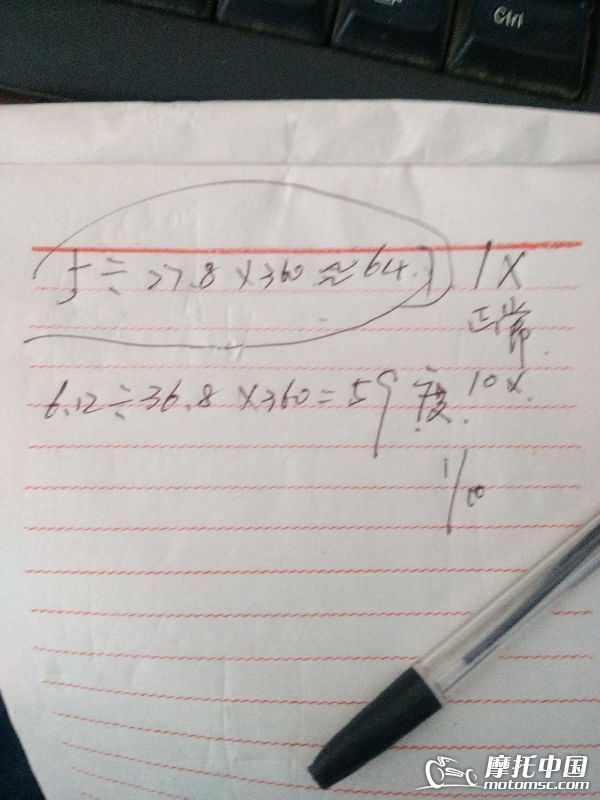 Ctrl
5÷27.8×360≈64.7 1X
正常
6.12÷36.8×360=59度 10X.
1/10
摩托中国
motomsc.com